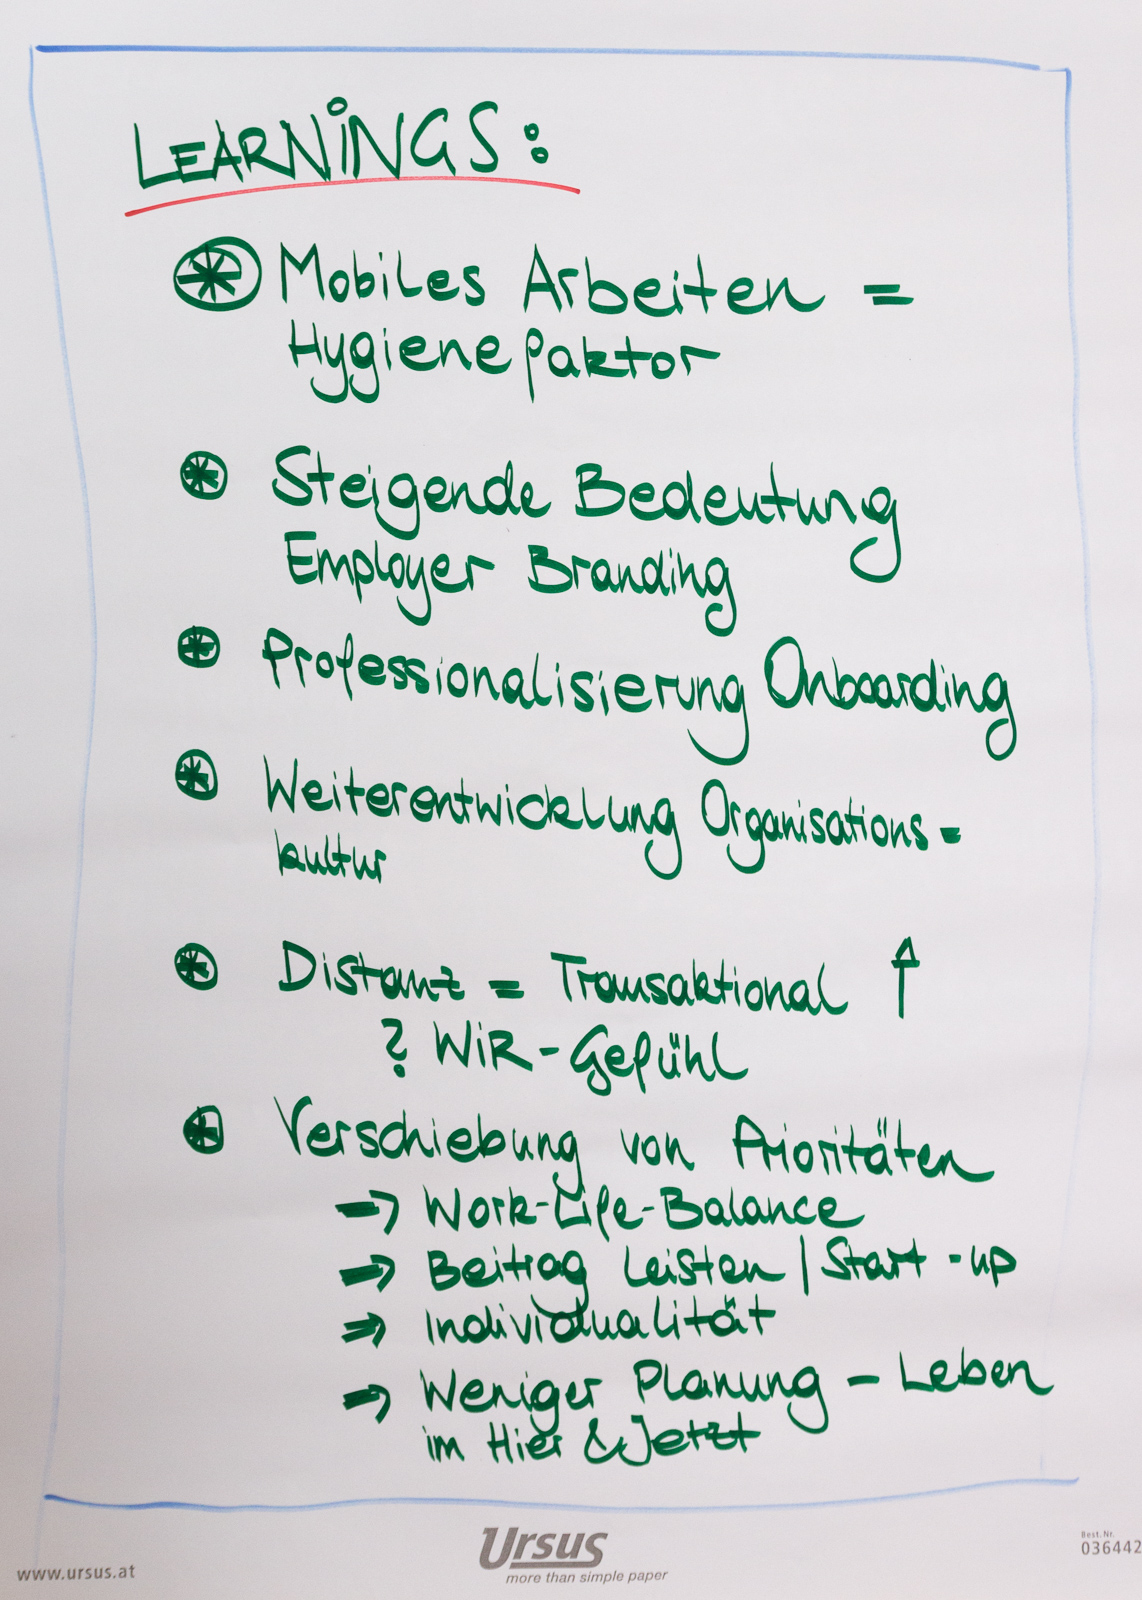 LEARNINGS:
Mobiles Arbeiten =
Hygienefaktor
Steigende Bedeutung
Employer Branding
Professionalisierung Onboarding
Weiterentwicklung Organisations=
kultur
Distanz = Transaktional ↑
? WIR-Gefühl
Verschiebung von Prioritäten
→ Work-Life-Balance
→ Beitrag leisten | Start-up
→ Individualität
→ Weniger Planung - Leben
im Hier & Jetzt
Ursus
more than simple paper
www.ursus.at
Best. Nr.
036442